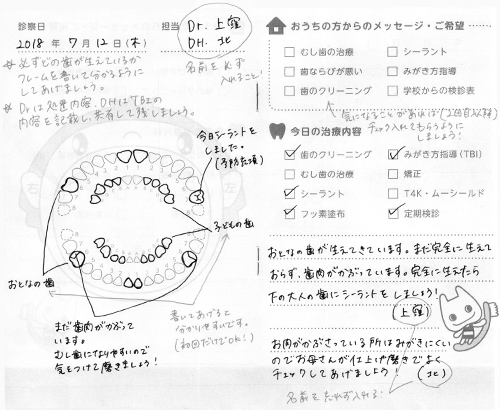 診察日
2018 年 7 月 12 日(木)
担当
Dr. 上窪
DH. 北
名前を必ず
入れること!
※必ずどの歯が生えているか
フレームを書いて分かるように
してあげましょう。
※Drは処置内容、DHはTBIの
内容を記載し、共有して残しましょう。
今日シーラントを
しました。
(予防処項)
右
左
子どもの歯
おとなの歯
まだ歯肉がかぶって
います。
むし歯になりやすいので
気をつけて磨きましょう!
書いてあげると
分かりやすいです。
(初回だけでOK!)
おうちの方からのメッセージ・ご希望
むし歯の治療
シーラント
歯ならびが悪い
みがき方指導
歯のクリーニング
学校からの検診表
気になることがあれば(2回目以降)
チェック入れてもらうように
しましょう!
今日の治療内容
歯のクリーニング
みがき方指導(TBI)
むし歯の治療
矯正
シーラント
T4K・ムーシールド
フッ素塗布
定期検診
おとなの歯が生えてきています。まだ完全に生えて
おらず、歯肉がかぶっています。完全に生えたら
下の大人の歯にシーラントをしましょう!
(上窪)
お肉がかぶさっている所はみがきにくい
のでお母さんが仕上げ磨きでよく
チェックしてあげましょう! (北)
名前を忘れず入れる!